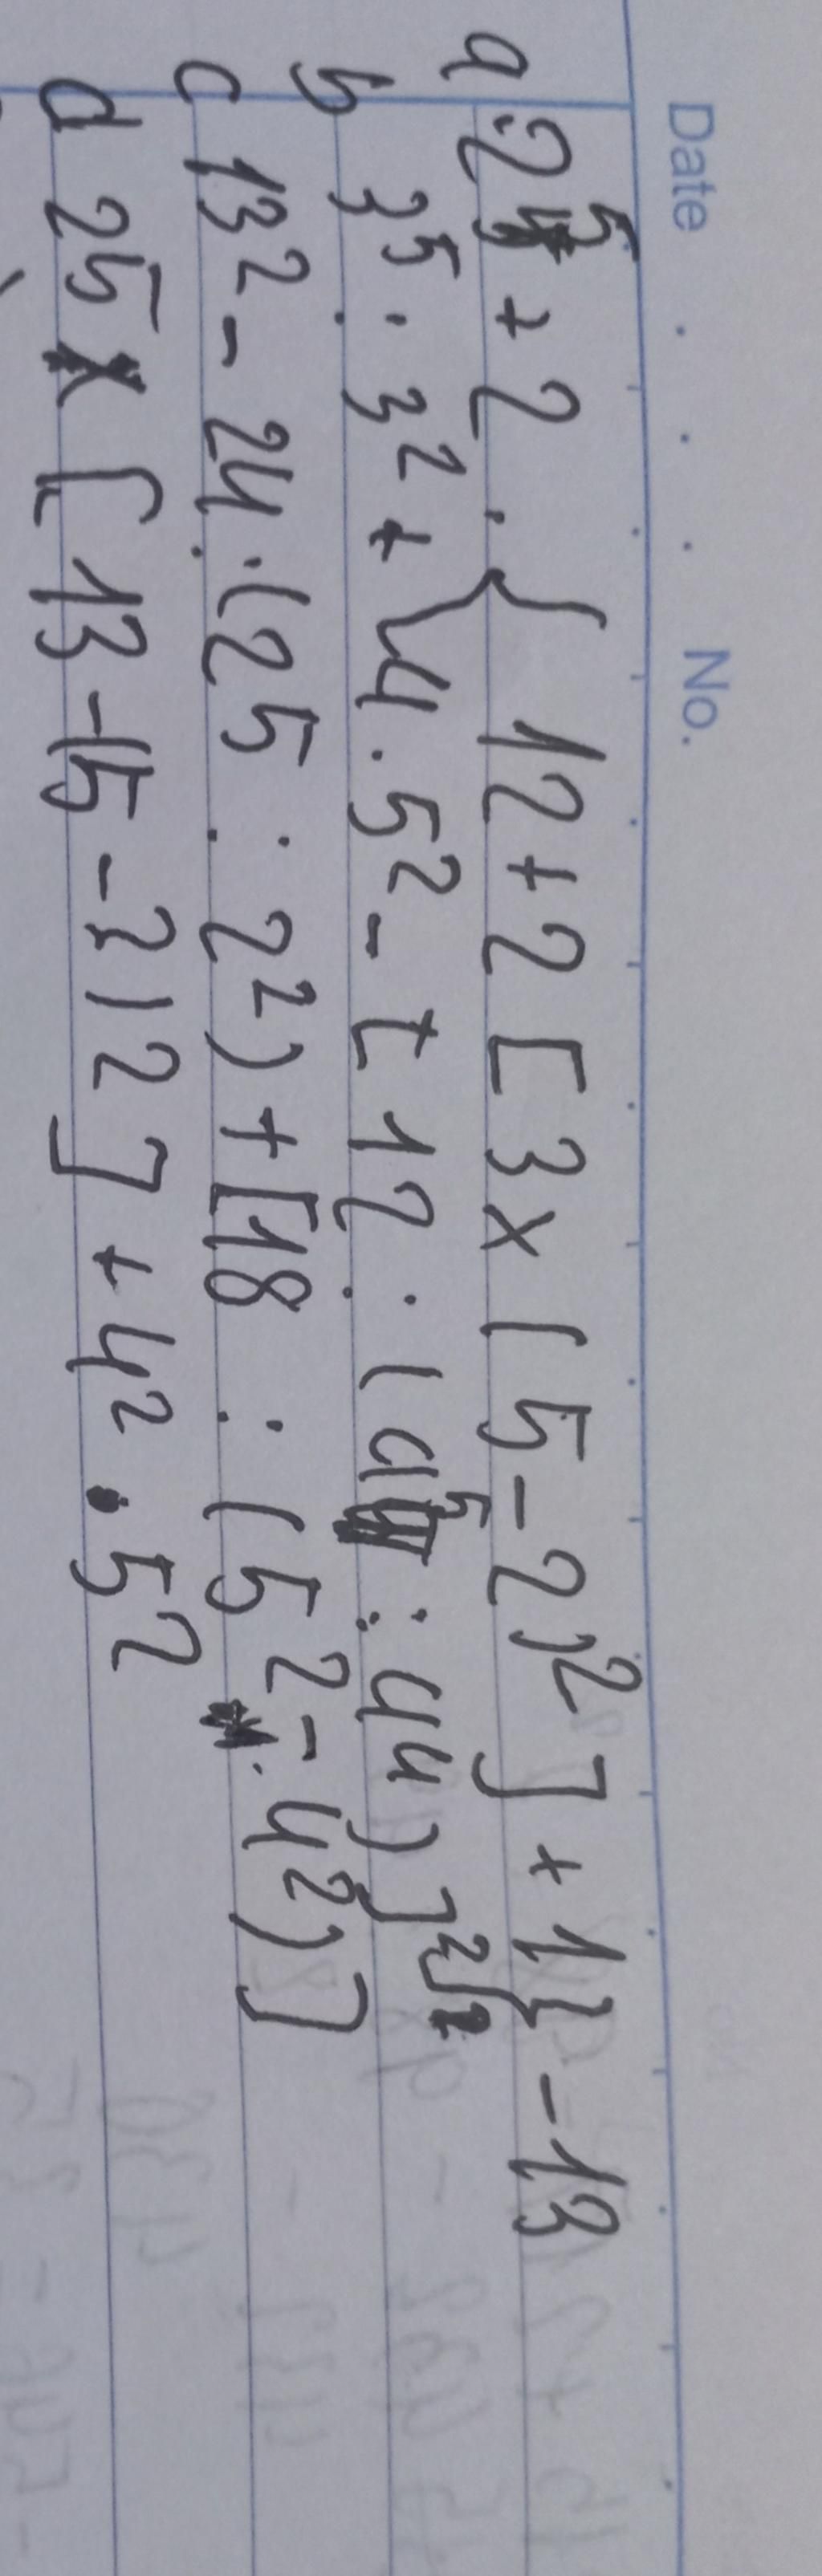 Date . . . No.
a 2⁵ + 2 . { 12 + 2 [ 3 x ( 5 - 2 )² ] + 1 } - 13
b 3⁵ : 3² + { 4 . 5² - [ 12 : ( 4⁵ : 4⁴ ) ]² }
c 13² - 24 : ( 25 : 2² ) + [ 18 : ( 5² - 4² ) ]
d 25 x [ 13 - ( 5 - 3 ) 2 ] + 4² . 5²